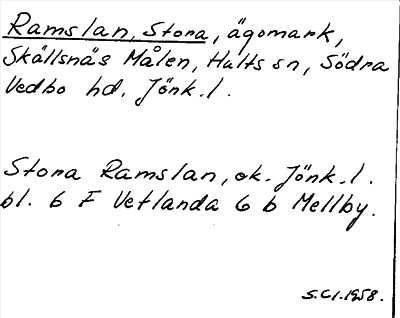 Ramslan, Stora, ägomark,
Skällsnäs Målen, Hults sn, Södra
Vedbo hd. Jönk.l.
Stora Ramslan, ek. Jönk.l.
bl. 6 F Vetlanda 6 b Mellby.
S.Cl.1958.